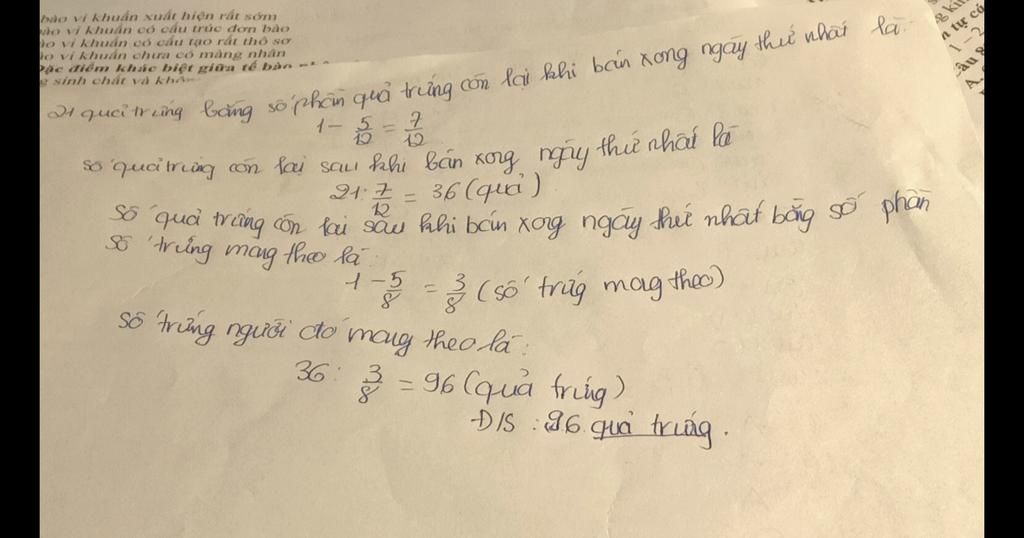 bào vi khuẩn xuất hiện rất sớm
bào vi khuẩn có cấu trúc đơn bào
ào vi khuẩn có cấu tạo rất thô sơ
ào vi khuẩn chưa có màng nhân
Đặc điểm khác biệt giữa tế bàn
g sinh chất và khô
21 quả trứng bằng số phần quả trứng còn lại khi bán xong ngày thứ nhất là:
1 - 5/12 = 7/12
số quả trứng còn lại sau khi bán xong ngày thứ nhất là
21: 7/12 = 36 (quả)
Số quả trứng còn lại sau khi bán xong ngày thứ nhất bằng số phần
số trứng mang theo là:
1 - 5/8 = 3/8 (số trứg mag theo)
Số trứng người đó mang theo là:
36: 3/8 = 96 (quả trứng)
Đ/S: 96 quả trứng.